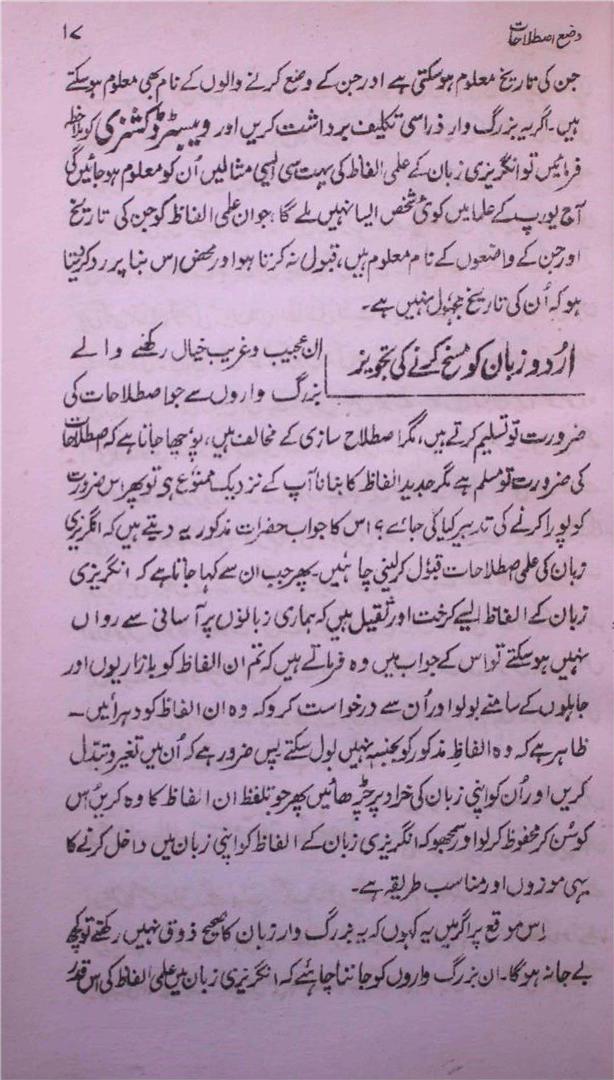 وضع اصطلاحات
۱۷
جن کی تاریخ معلوم ہو سکتی ہے اور جن کے وضع کرنے والوں کے نام بھی معلوم ہو سکتے
ہیں۔ اگر یہ بزرگ وار ذرا سی تکلیف برداشت کریں اور ویبسٹر ڈکشنری کو ملاحظہ
فرمائیں تو انگریزی زبان کے علمی الفاظ کی بہت سی ایسی مثالیں اُن کو معلوم ہو جائیں گی
آج یورپ کے علما میں کوئی شخص ایسا نہیں ملے گا، جو ان علمی الفاظ کو جن کی تاریخ
اور جن کے واضعوں کے نام معلوم ہیں، قبول نہ کرتا ہو اور محض اس بنا پر رد کر دیتا
ہو کہ اُن کی تاریخ مجہول نہیں ہے۔
اُردو زبان کو مسخ کرنے کی تجویز
ان عجیب و غریب خیال رکھنے والے
بزرگ واروں سے جو اصطلاحات کی
ضرورت تو تسلیم کرتے ہیں، مگر اصطلاح سازی کے مخالف ہیں، پوچھا جاتا ہے کہ اصطلاحات
کی ضرورت تو مسلم ہے مگر جدید الفاظ کا بنانا آپ کے نزدیک ممنوع ہی تو پھر اس ضرورت
کو پورا کرنے کی تدبیر کیا کی جائے؟ اس کا جواب حضرات مذکور یہ دیتے ہیں کہ انگریزی
زبان کی علمی اصطلاحات قبول کر لینی چاہئیں۔ پھر جب ان سے کہا جاتا ہے کہ انگریزی
زبان کے الفاظ ایسے کرخت اور ثقیل ہیں کہ ہماری زبانوں پر آسانی سے رواں
نہیں ہو سکتے تو اس کے جواب میں وہ فرماتے ہیں کہ تم ان الفاظ کو بازاریوں اور
جاہلوں کے سامنے بولو اور اُن سے درخواست کرو کہ وہ ان الفاظ کو دہرائیں۔
ظاہر ہے کہ وہ الفاظِ مذکور کو بجنسہٖ نہیں بول سکتے پس ضرور ہے کہ اُن میں تغیر و تبدّل
کریں اور اُن کو اپنی زبان کی خراد پر چڑھائیں پھر جو تلفظ ان الفاظ کا وہ کریں اُس
کو سُن کر محفوظ کر لو اور سمجھو کہ انگریزی زبان کے الفاظ کو اپنی زبان میں داخل کرنے کا
یہی موزوں اور مناسب طریقہ ہے۔
اِس موقع پر اگر میں یہ کہوں کہ یہ بزرگ وار زبان کا صحیح ذوق نہیں رکھتے تو کچھ
بے جا نہ ہوگا۔ ان بزرگ واروں کو جاننا چاہئے کہ انگریزی زبان میں علمی الفاظ کی اس قدر